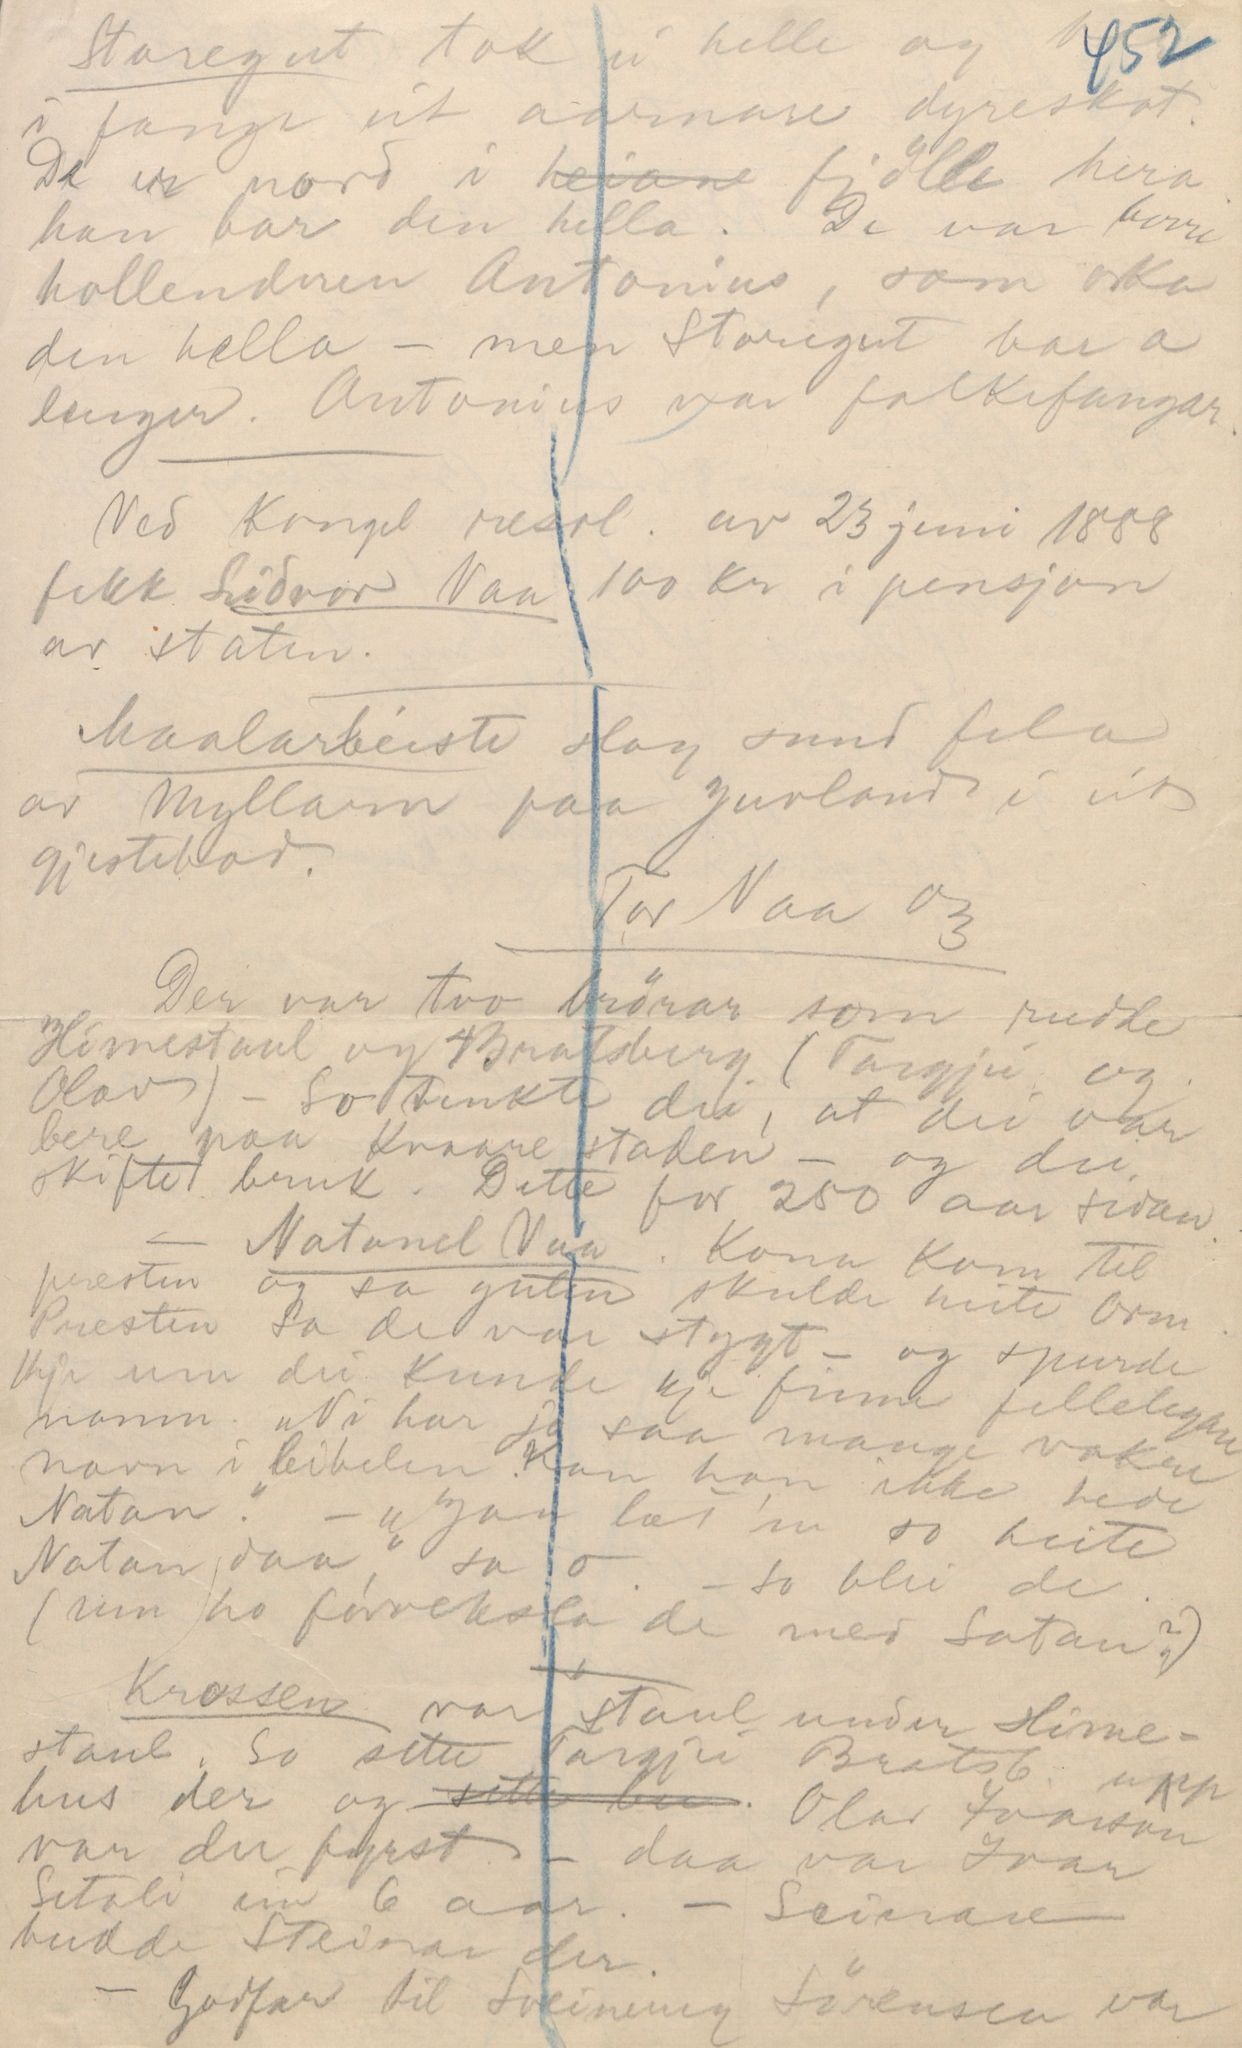 452
Storegut tok ei helle og
i fange eit aarmare dyreskot.
De er nord i heiane fjölle hera
han bar den hella. De var berre
hollenderen Antonius, som orka
den hella – men Storegut bar a
lenger. Antonius var folkefangar.
Ved Kongel resol. av 23 juni 1888
fekk Sidvor Vaa 100 Kr i pensjon
av staten.
Maalarbeiste slog sund fela
av Myllarn paa Juvland i eit
gjestebod.
Tor Vaa og
Der var tvo brörar som rudde
Himestaul og Bratsberg (Targjei og
Olav) – So tenkte dei, at dei var
bere paa Kvaare staden – og dei
skifte bruk. Dette for 250 aar sidan.
– Natanel Vaa. Kona kom til
presten og sa guten skulde heite Orm.
Presten sa de var stygt – og spurde
kje um dei kunde kje finne felleligare
namn. „Vi har jo saa mange vakre
navn i bibelen. Kan han ikke hede
Natan." – „Jau læt 'n so heite
Natan daa," sa o. – So blei de.
(um ho forveksla de med Satan?)
Krossen var staul under Hime-
staul. So sette Targjei Bratsb. upp
hus der og sette bu. Olav Ivarson
var der fyrst – daa var Ivar
Setali ein 6 aar. – Seinare
budde Steinar der.
– Godfar til Sveinung Sörensen var